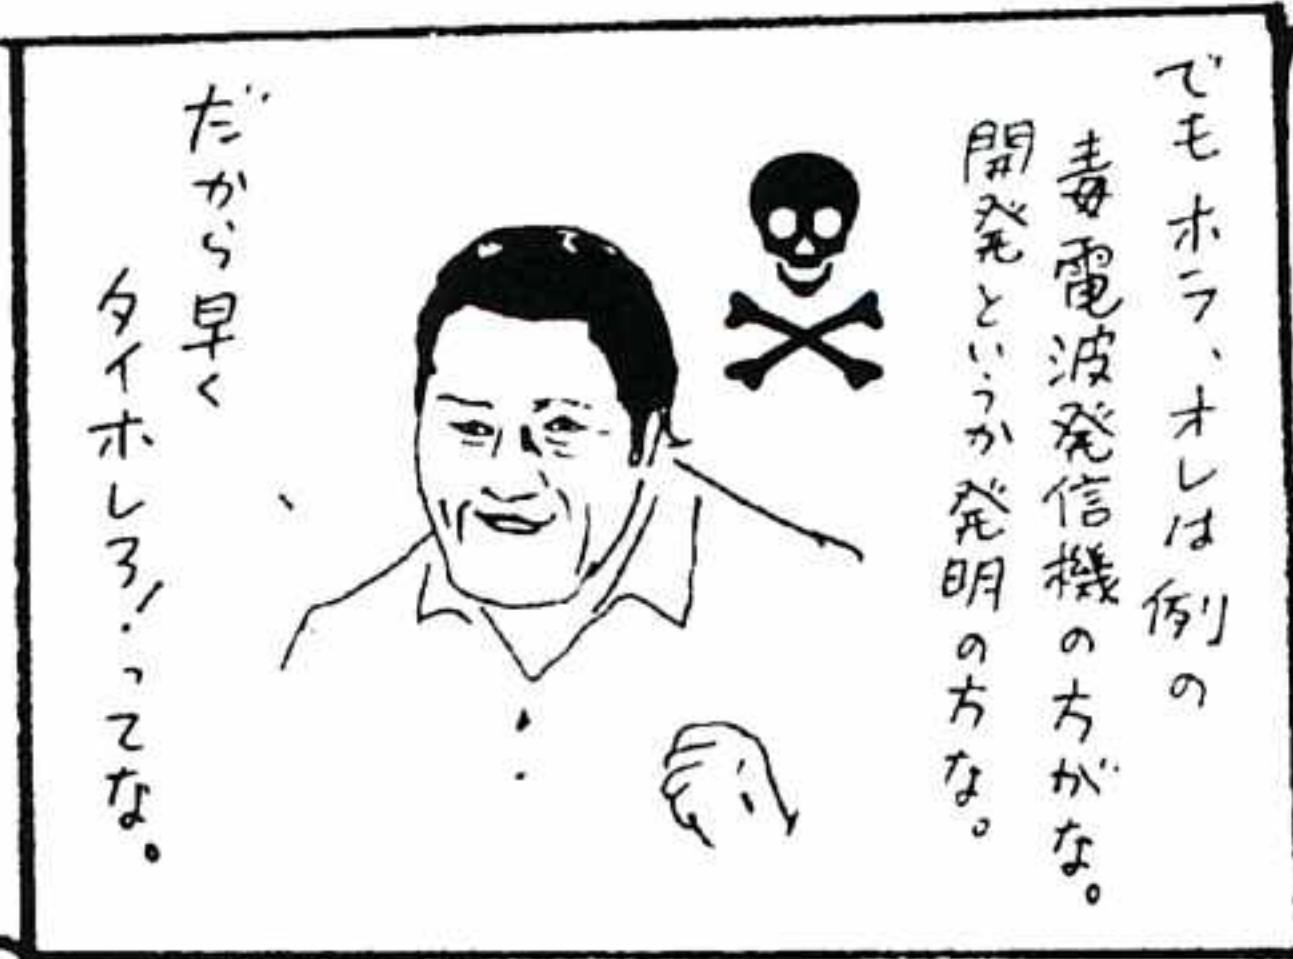 でもホラ、オレは例の
毒電波発信機の方がな。
開発というか発明の方な。
だから早く
タイホしろ!ってな。